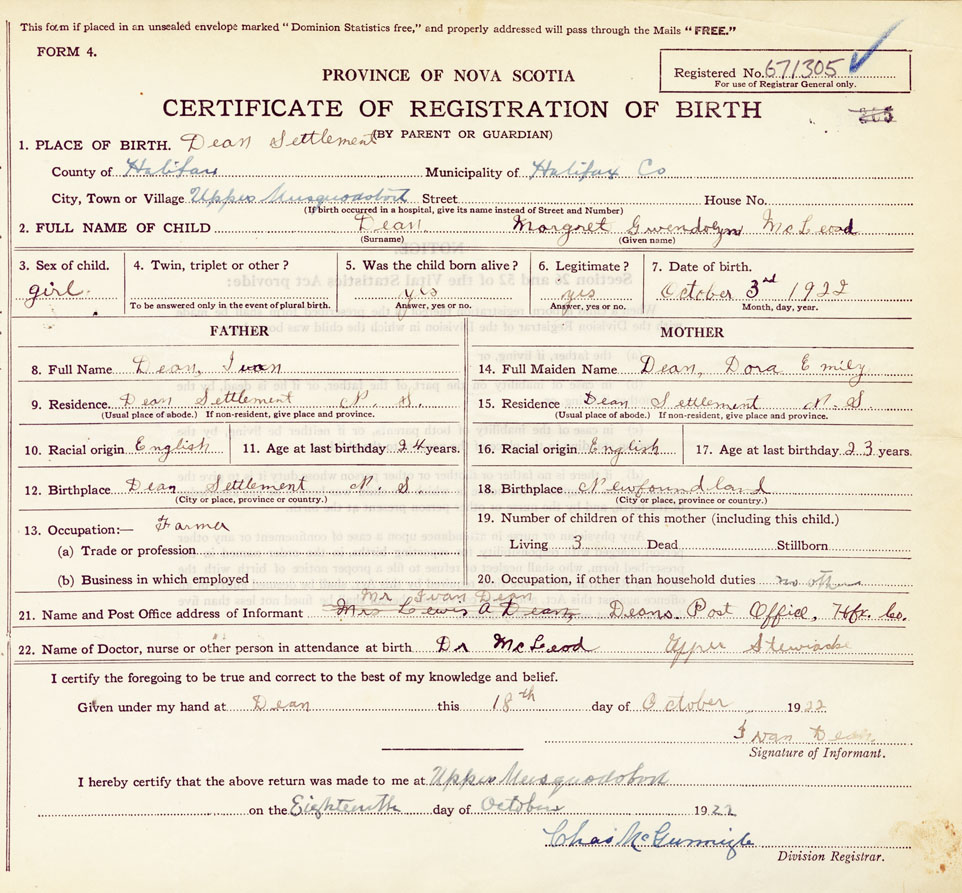 This form if placed in an unsealed envelope marked "Dominion Statistics free," and properly addressed will pass through the Mails "FREE."
FORM 4.
Registered No. 671305
For use of Registrar General only.
PROVINCE OF NOVA SCOTIA
CERTIFICATE OF REGISTRATION OF BIRTH
(BY PARENT OR GUARDIAN)
1. PLACE OF BIRTH. Dean Settlement
County of Halifax Municipality of Halifax Co
City, Town or Village Upper Musquodoboit Street House No.
(If birth occurred in a hospital, give its name instead of Street and Number)
2. FULL NAME OF CHILD Dean Margret Gwendolyn McLeod
(Surname) (Given name)
3. Sex of child. 4. Twin, triplet or other? 5. Was the child born alive? 6. Legitimate? 7. Date of birth.
girl. yes yes October 3rd 1922
To be answered only in the event of plural birth. Answer, yes or no. Answer, yes or no. Month, day, year.
FATHER MOTHER
8. Full Name Dean, Ivan 14. Full Maiden Name Dean, Dora Emily
9. Residence. Dean Settlement N. S. 15. Residence Dean Settlement N. S
(Usual place of abode.) If non-resident, give place and province. (Usual place of abode.) If non-resident, give place and province.
10. Racial origin English 11. Age at last birthday 24 years. 16. Racial origin English 17. Age at last birthday 23 years.
12. Birthplace Dean Settlement N. S 18. Birthplace Newfoundland
(City or place, province or country.) (City or place, province or country.)
13. Occupation:— Farmer 19. Number of children of this mother (including this child.)
(a) Trade or profession Living 3 Dead Stillborn
(b) Business in which employed 20. Occupation, if other than household duties no other
Mr Ivan Dean
21. Name and Post Office address of Informant Mrs Lewis A Dean, Deans Post Office, Hfx. Co.
22. Name of Doctor, nurse or other person in attendance at birth Dr McLeod Upper Stewiacke
I certify the foregoing to be true and correct to the best of my knowledge and belief.
Given under my hand at Dean this 18th day of October 1922
Ivan Dean
Signature of Informant.
I hereby certify that the above return was made to me at Upper Musquodoboit
on the Eighteenth day of October 1922
Chas McGunnigle
Division Registrar.